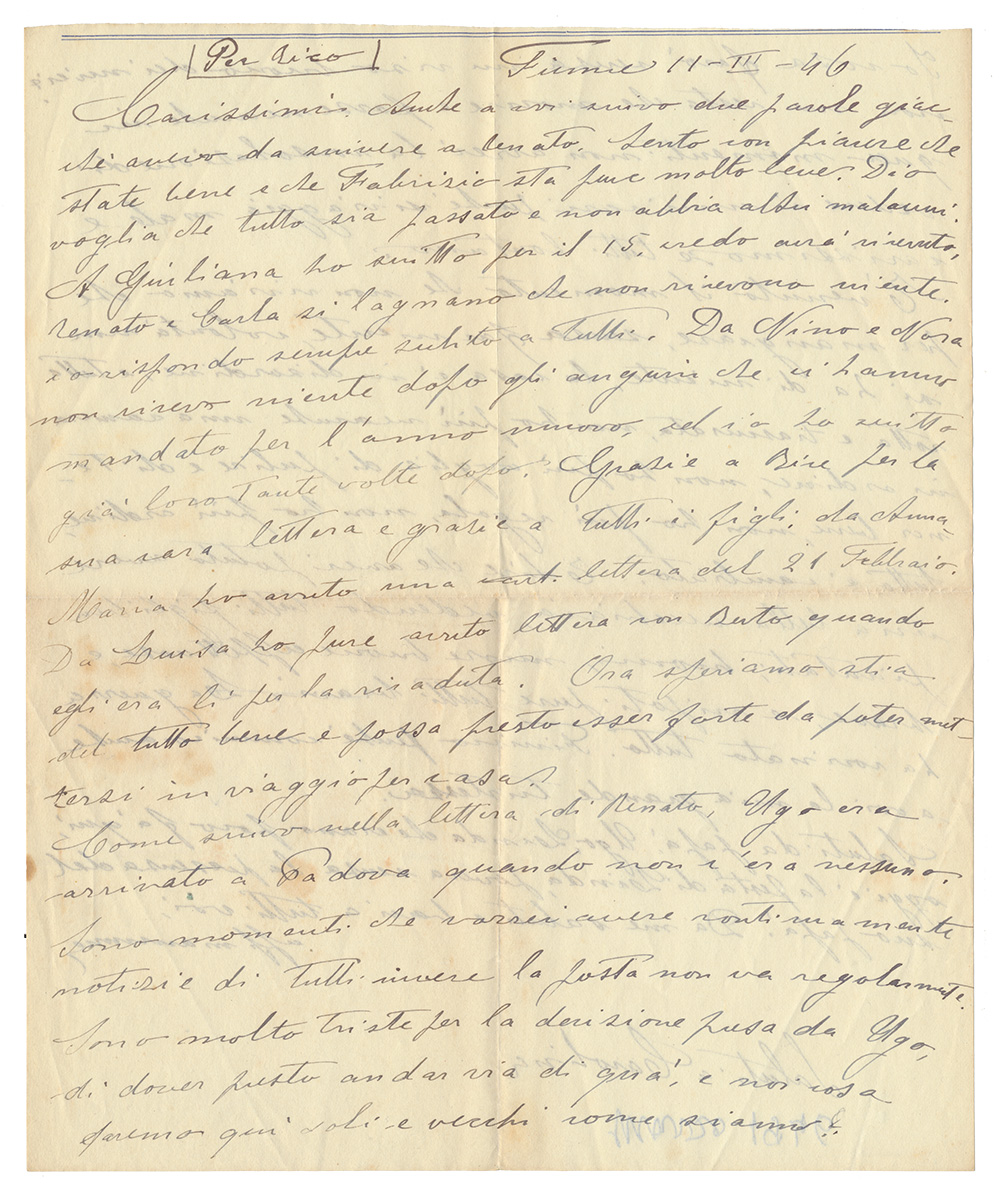 Per Rico
Fiume 11-III-46
Carissimi. Anche a voi scrivo due parole giac-
chè avevo da scrivere a Renato. Sento con piacere che
state bene e che Fabrizio sta pure molto bene. Dio
voglia che tutto sia passato e non abbia altri malanni.
A Giuliana ho scritto per il 15, credo avrà ricevuto,
Renato e Carla si lagnano che non ricevono niente.
io rispondo sempre subito a tutti. Da Nino e Nora
non ricevo niente dopo gli auguri che ci hanno
mandato per l'anno nuovo, ed io ho scritto
già loro tante volte dopo. Grazie a Bice per la
sua cara lettera e grazie a tutti i figli, da Anna-
Maria ho avuto una cart. lettera del 21 Febbraio.
Da Luisa ho pure avuto lettera con Berto quando
egli era lì per la ricaduta. Ora speriamo stia
del tutto bene e possa presto esser forte da poter met-
tersi in viaggio per casa.
Come scrivo nella lettera di Renato, Ugo era
arrivato a Padova quando non c'era nessuno.
Sono momenti che vorrei avere continuamente
notizie di tutti invece la posta non va regolarmente.
Sono molto triste per la decisione presa da Ugo,
di dover presto andar via di quà, e noi cosa
faremo quì soli e vecchi come siamo?